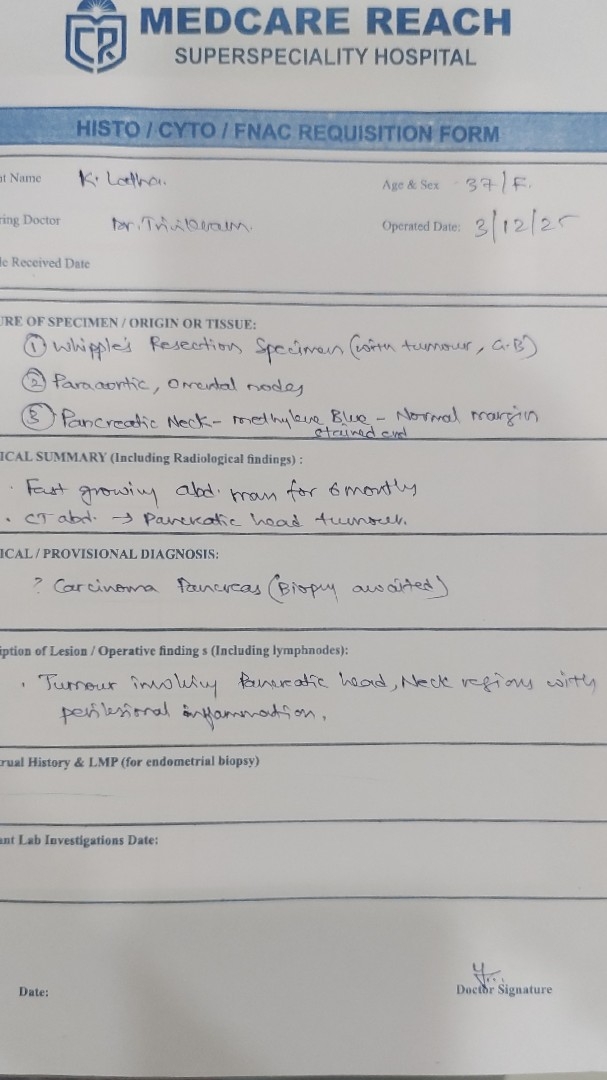 MEDCARE REACH
SUPERSPECIALITY HOSPITAL
HISTO / CYTO / FNAC REQUISITION FORM
nt Name K. Latha. Age & Sex 37/F.
ring Doctor Dr. Operated Date: 3/12/25
le Received Date
URE OF SPECIMEN / ORIGIN OR TISSUE:
① Whipple's Resection Specimen (with tumour, G.B)
② Paraaortic, Omental nodes
③ Pancreatic Neck - methylene Blue - Normal margin
stained end
ICAL SUMMARY (Including Radiological findings) :
. Fast growing abd. mass for 6 months
. CT abd. → Pancreatic head tumour.
ICAL / PROVISIONAL DIAGNOSIS:
? Carcinoma Pancreas (Biopsy awaited)
iption of Lesion / Operative finding s (Including lymphnodes):
. Tumour involving Pancreatic head, Neck regions with
perilesional inflammation.
rual History & LMP (for endometrial biopsy)
ant Lab Investigations Date:
Date:
Doctor Signature